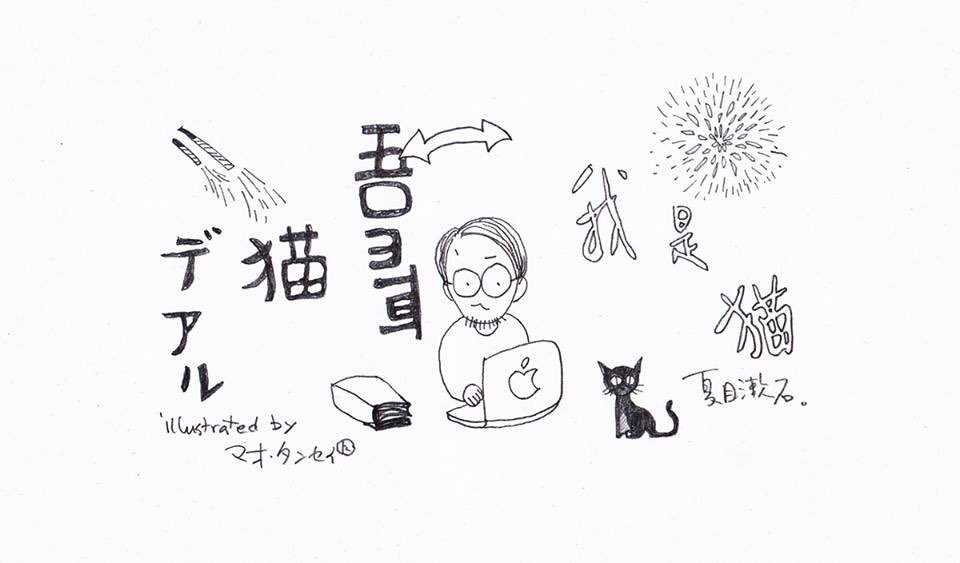 吾
猫
デアル
我是
猫
夏目漱石。
illustrated by
マオ・タンセイ